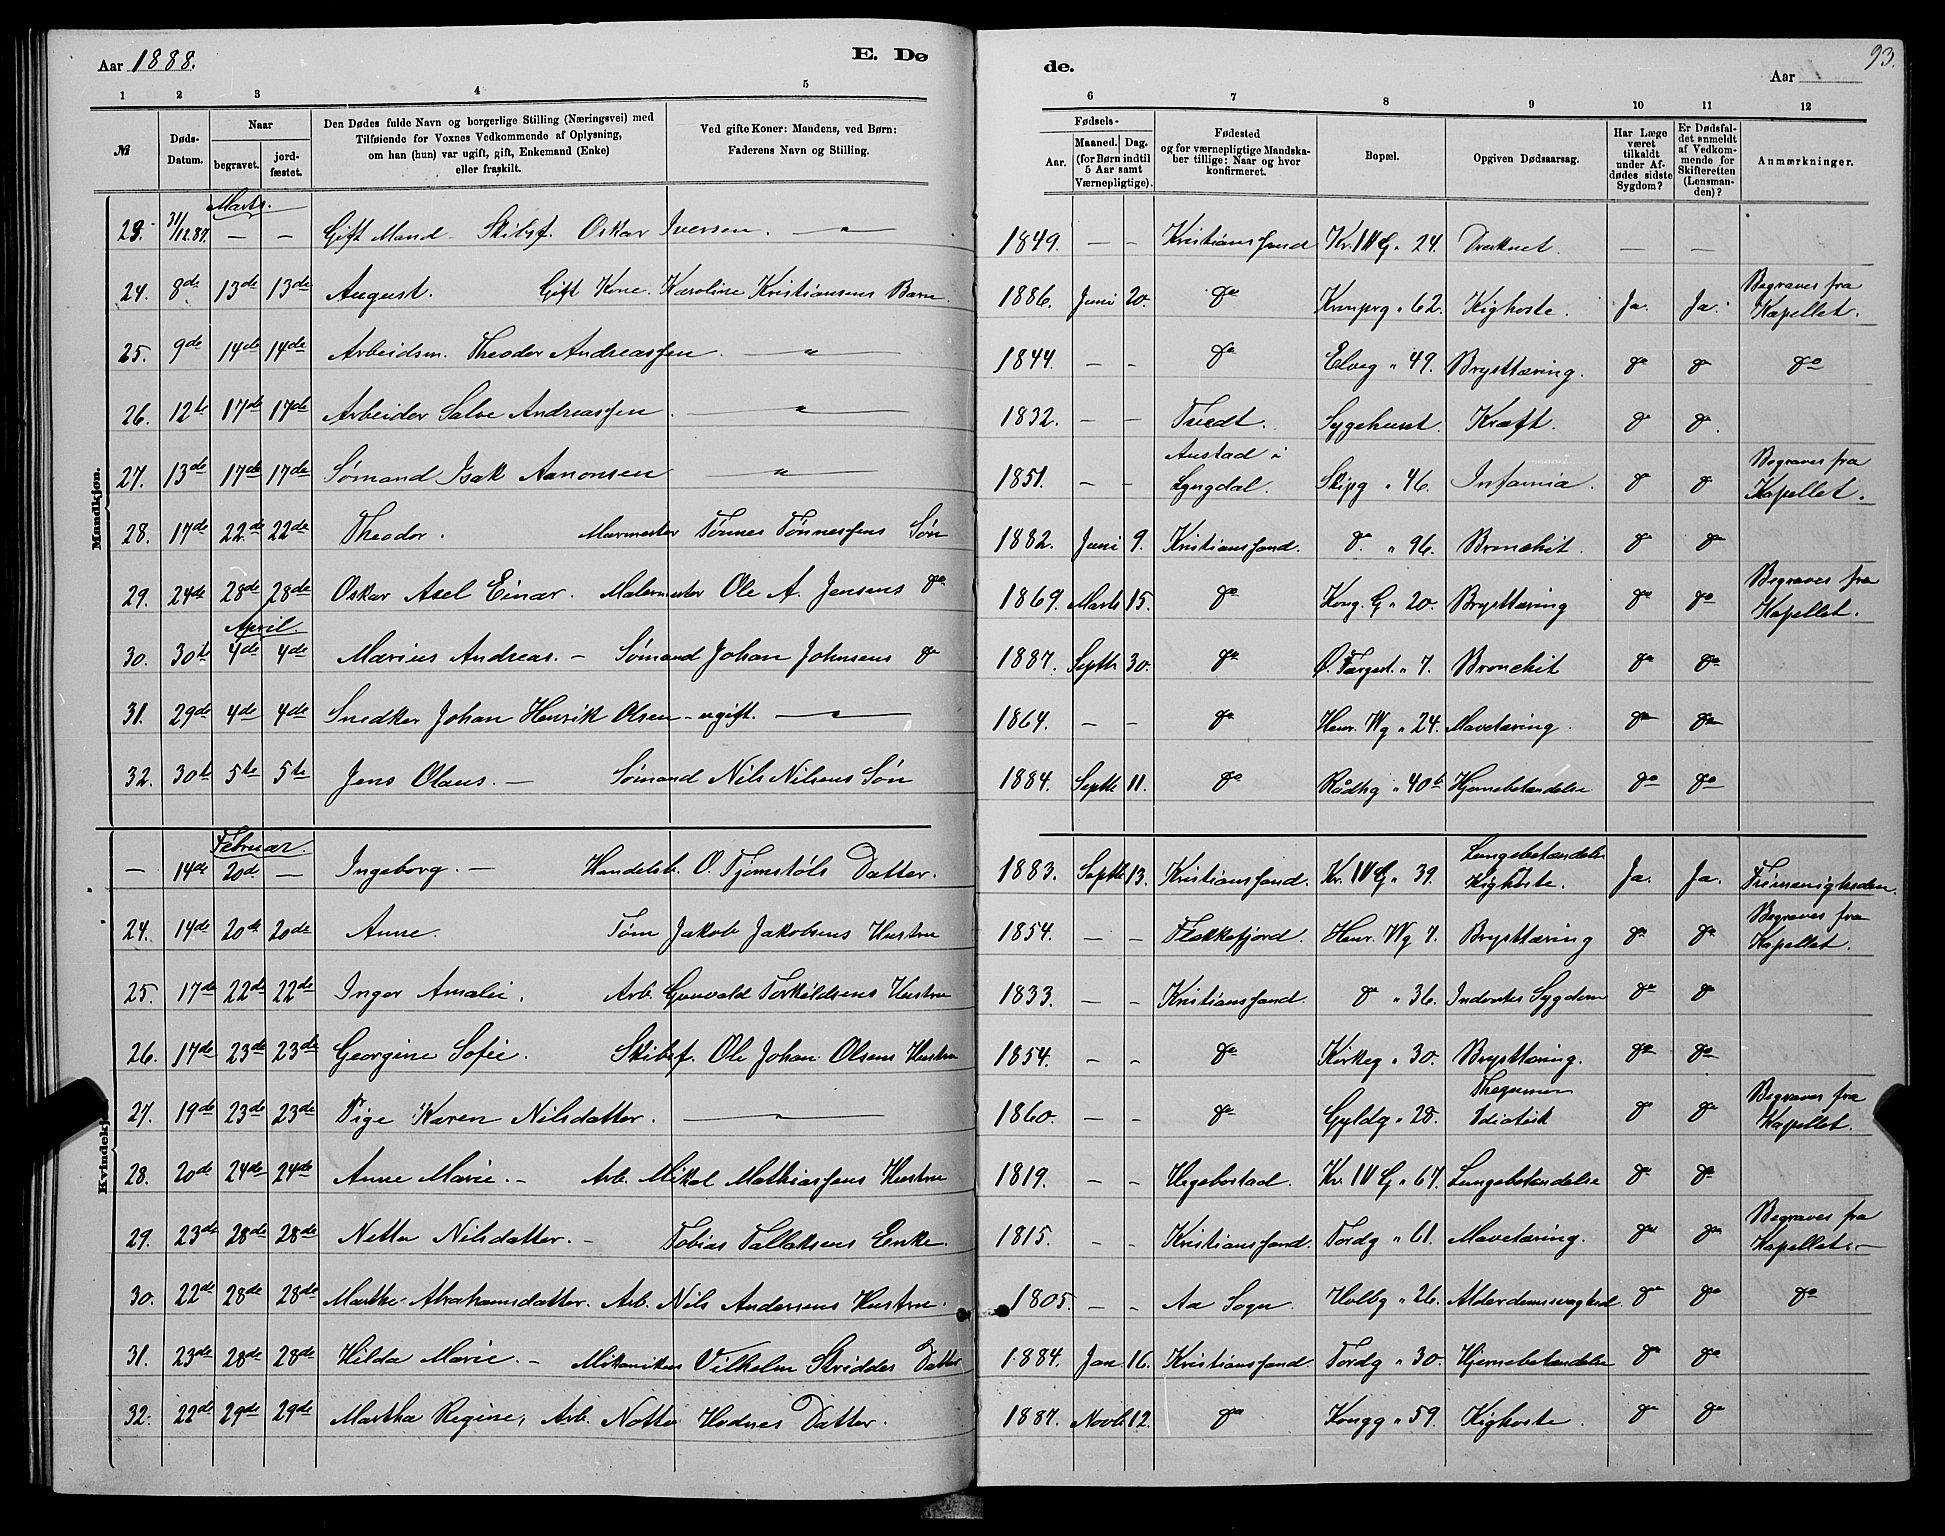 Aar 1888.
E. Dø
de.
93.
Aar
1 2 3 4 5 6 7 8 9 10 11 12
№
Døds-Datum.
Naar
begravet. jord-fæstet.
Den Dødes fulde Navn og borgerlige Stilling (Næringsvei) med
Tilføiende for Voxnes Vedkommende af Oplysning,
om han (hun) var ugift, gift, Enkemand (Enke)
eller fraskilt.
Ved gifte Koner: Mandens, ved Børn:
Faderens Navn og Stilling.
Fødsels-
Aar. Maaned. Dag.
(for Børn indtil
5 Aar samt
Værnepligtige).
Fødested
og for værnepligtige Mandska-
ber tillige: Naar og hvor
konfirmeret.
Bopæl.
Opgiven Dødsaarsag.
Har Læge
været
tilkaldt
under Af-
dødes sidste
Sygdom?
Er Dødsfal-
det anmeldt
af Vedkom-
mende for
Skifteretten
(Lensman-
den)?
Anmærkninger.
Mandkjøn.
Marts.
23. 31/12.87. — — Gift Mand Skibsf. Oskar Iversen. — " — 1849. — — Kristianssand Kr. IV G. " 24. Druknet. — —
24. 8de 13de 13de August. Gift Kone Karoline Kristiansens Barn. 1886. Juni 20. do Kronprg " 62. Kighoste. Ja. Ja. Begraves fra Kapellet.
25. 9de 14de 14de Arbeidsm. Theodor Andreassen. — " — 1844. — — do Elveg " 49. Brysttæring. do do do
26. 12te 17de 17de Arbeider Salve Andreassen. — " — 1832. — — Tvedt. Sygehuset. Kræft. do do.
27. 13de 17de 17de Sømand Isak Aanonsen — " — 1851. — — Austad i Lyngdal. Skipg " 46. do do Begraves fra Kapellet.
28. 17de 22de 22de Theodor. Murmester Tønnes Tønnessens Søn 1882. Juni 9. Kristianssand. do " 96. Bronchit. do do
29. 24de 28de 28de Oskar Axel Einar. Malermester Ole A. Jensens do 1869. Marts 15. do Kong. G " 20. Brysttæring do do Begraves fra Kapellet.
April.
30. 30te 4de 4de Marius Andreas. — Sømand Johan Johnsens do 1887. Septb 30. do Ø. " 7. Bronchit do do
31. 29de 4de 4de Snedker Johan Henrik Olsen — ugift. — " — 1864. — — do Henr. Wg " 24. Mavetæring. do do
32. 30te 5te 5te Jens Olaus. — Sømand Nils Nilsens Søn 1884. Septb 11. do Rådhg " 40b Hjernebetændelse do do
Kvindekj.
Februar.
— 14de 20de — Ingeborg. — Handelsb. O. Tjømstøls Datter. 1883. Septb 13. Kristianssand. Kr. IV G. " 39. Lungebetændelse Kighoste. Ja. Ja. Frimenigheden.
24. 14de 20de 20de Anne. Tøm Jakob Jakobsens Hustru 1854. — — Flekkefjord. Henr. Wg 7. Brysttæring do do Begraves fra Kapellet.
25. 17de 22de 22de Inger Amalie. Arb. Gunvald Torkildsens Hustru 1833. — — Kristianssand. do " 36. Indvortes Sygdom do do
26. 17de 23de 23de Georgine Sofie. Skibsf. Ole Johan Olsens Hustru 1854. — — do Kirkeg " 30. Brysttæring. do do
27. 19de 23de 23de Pige Karen Nilsdatter. — " — 1860. — — do Gyldg " 28. Idiotisk do do Begraves fra Kapellet.
28. 20de 24de 24de Anne Marie. — Arb. Mikal Mathiassens Hustru 1819. — — Hegebostad. Kr. IV G " 67. Lungebetændelse do do
29. 23de 28de 28de Netta Nilsdatter. — Tobias Tallaksens Enke. 1815. — — Kristianssand. Tordg " 61. Mavetæring. do do Begraves fra Kapellet. —
30. 22de 28de 28de Marthe Abrahamsdatter. Arb. Nils Andersens Hustru. 1805. — — Aa Sogn. Holbg " 26. Alderdomssvaghed. do do do
31. 23de 28de 28de Hilda Marie. — Mekaniker Vilhelm Skriddes Datter 1884. Jan. 16. Kristianssand. Tordg " 30. Hjernebetændelse do do
32. 22de 29de 29de Martha Regine, Arb. Notto Hodnes Datter. 1887. Novb. 12. do Kongg " 59. Kighoste. do do